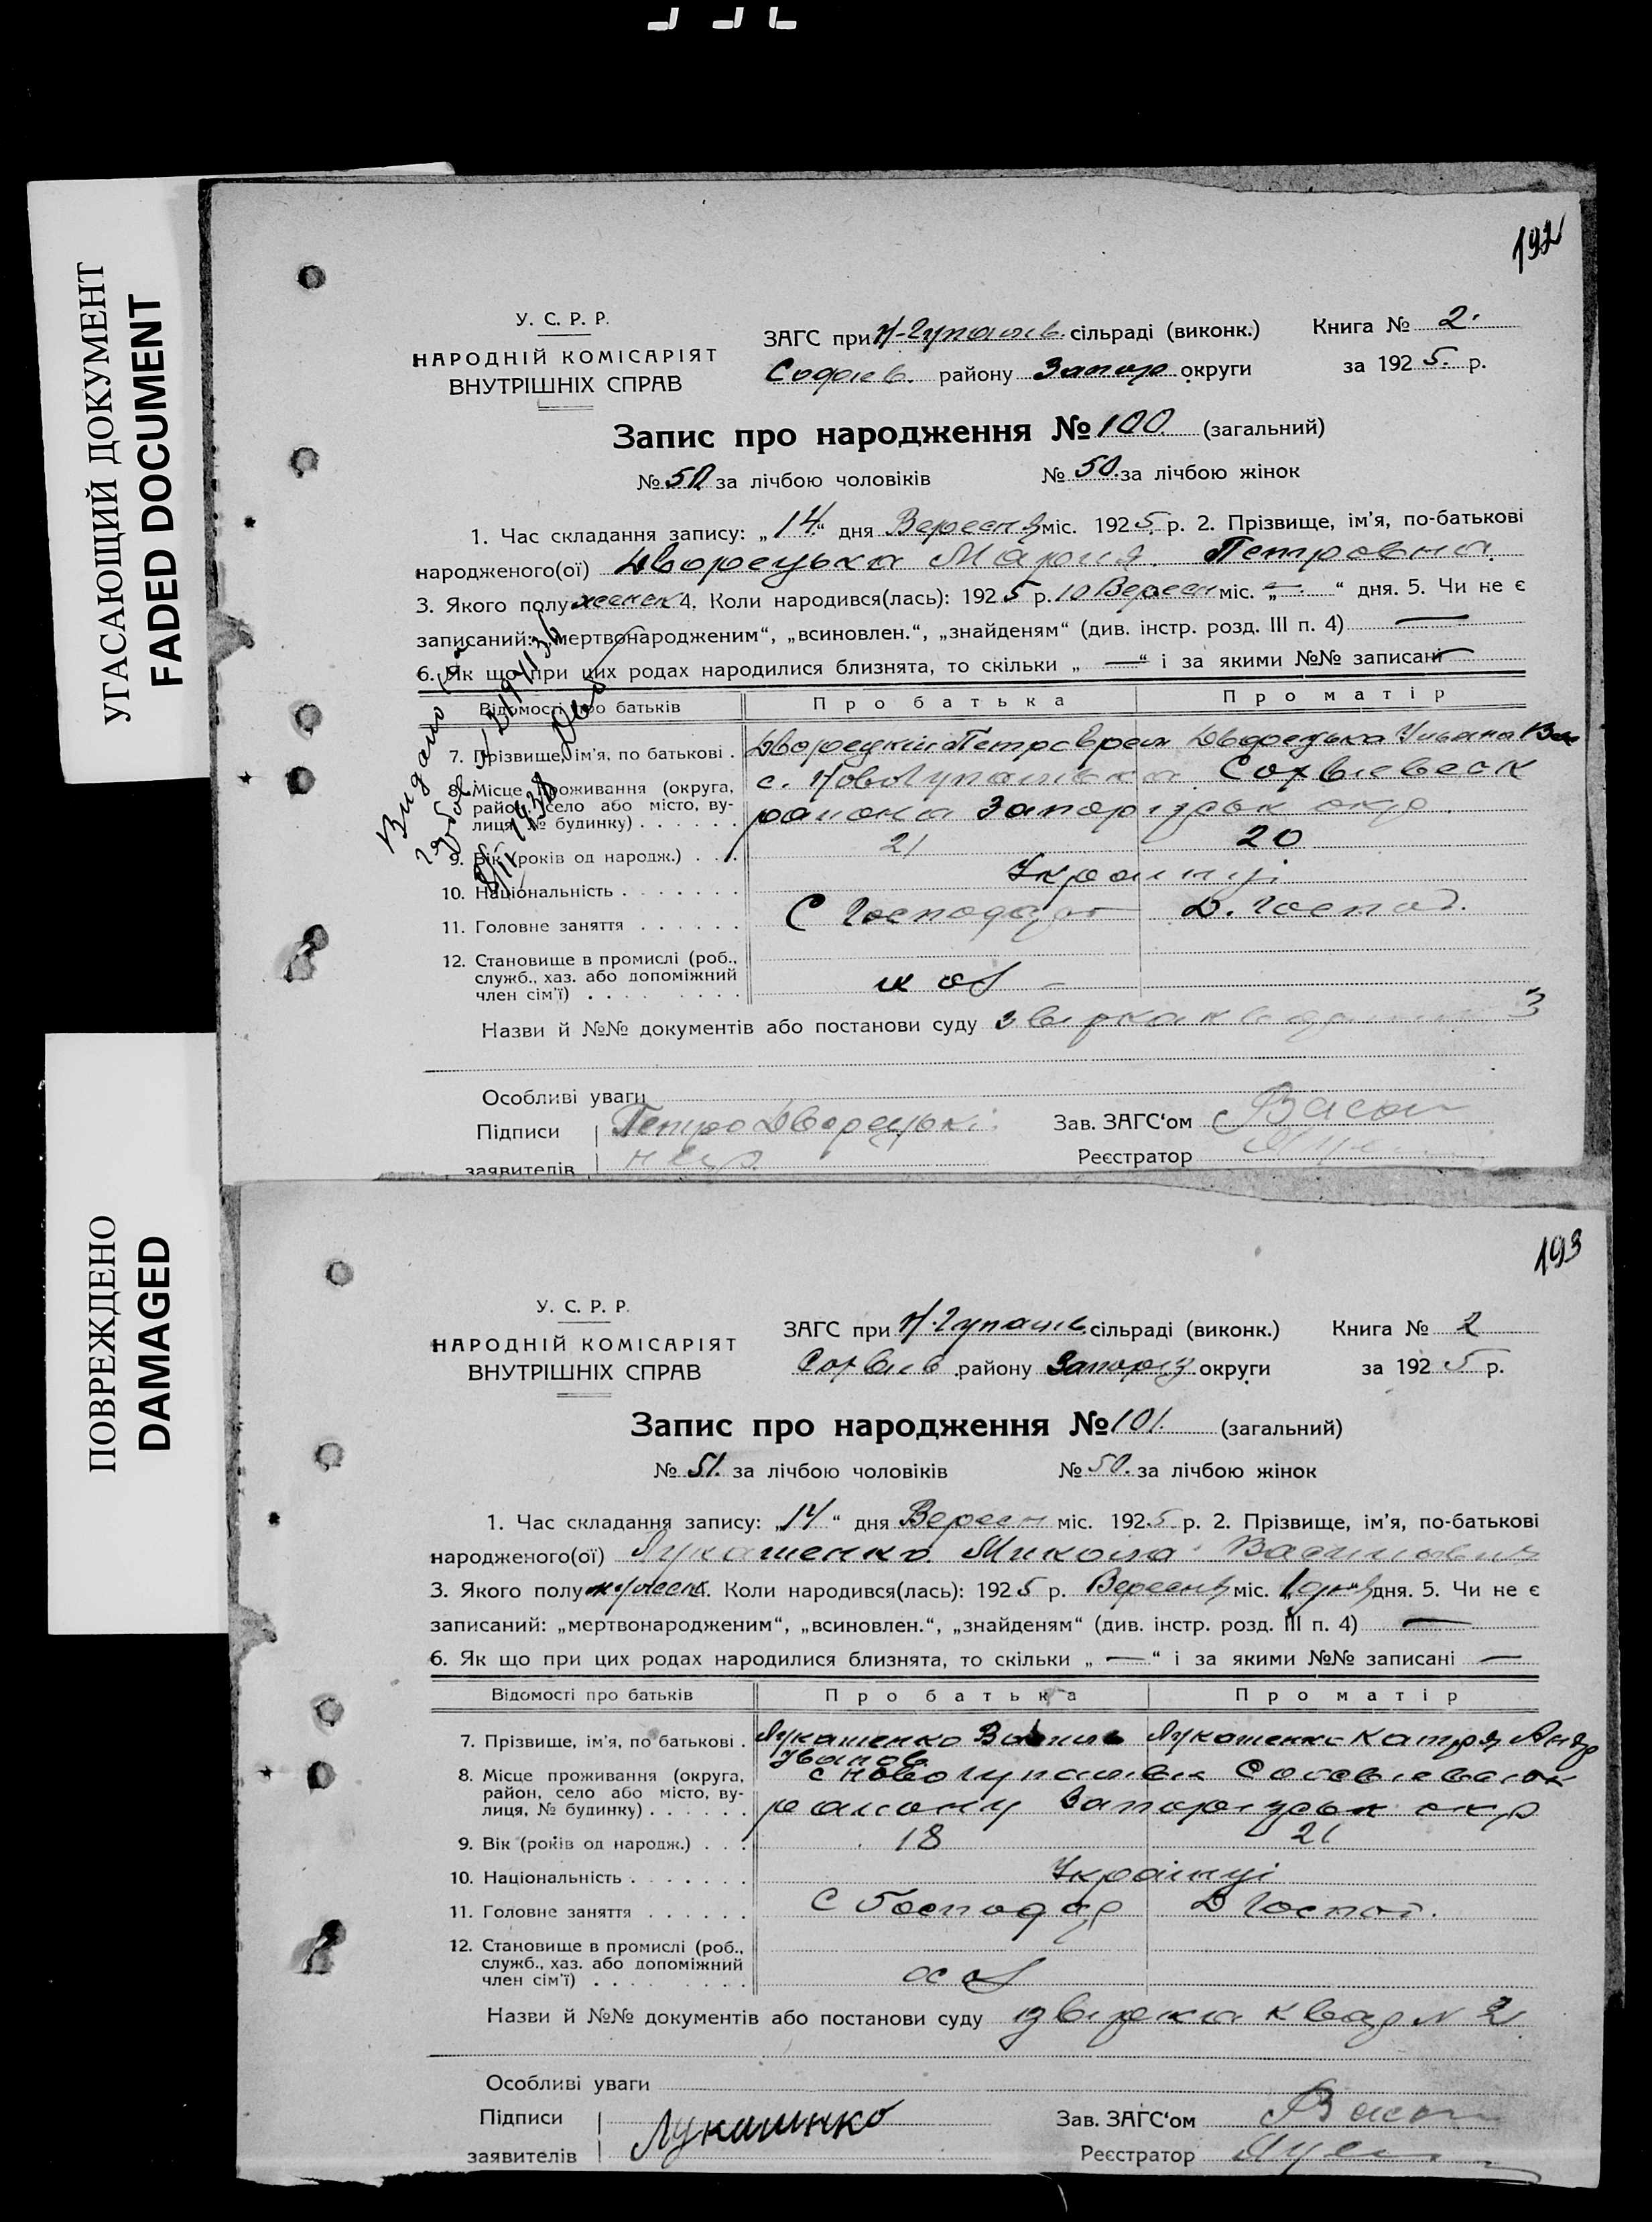 УГАСАЮЩИЙ ДОКУМЕНТ
FADED DOCUMENT
ПОВРЕЖДЕНО
DAMAGED
192
У. С. Р. Р.
НАРОДНІЙ КОМІСАРІЯТ
ВНУТРІШНІХ СПРАВ
ЗАГС при Н-Гупалів. сільраді (виконк.) Книга № 2.
Софиев. району Запор округи за 1925. р.
Запис про народження № 100 (загальний)
№ 50 за лічбою чоловіків № 50. за лічбою жінок
1. Час складання запису: „14“ дня Вересня міс. 1925 р. 2. Прізвище, ім’я, по-батькові
народженого(ої) Дворецька Мария Петровна
3. Якого полу женск 4. Коли народився(лась): 1925 р. 10 Вересн міс. „—“ дня. 5. Чи не є
записаний: „мертвонародженим“, „всиновлен.“, „знайденям“ (див. інстр. розд. III п. 4) —
6. Як що при цих родах народилися близнята, то скільки „—“ і за якими №№ записані —
Видано
Відомості про батьків Про батька Про матір
7. Прізвище, ім’я, по батькові . Дворецкий Петро Дворецька Ульяна
8. Місце проживання (округа, район, село або місто, вулиця, № будинку) . . . . . . с. Новогупалівка
района Запорізськ окр.
9. Вік (років од народж.) . . . 21 20
10. Національність . . . . . . . Українці
11. Головне заняття . . . . . . С Господар Д. Господ.
12. Становище в промислі (роб., служб., хаз. або допоміжний член сім’ї) . . . . . . . .
Назви й №№ документів або постанови суду звірка 3
Особливі уваги
Підписи Петро Дворецькі Зав. ЗАГС‘ом
заявителів Реєстратор
193
У. С. Р. Р.
НАРОДНІЙ КОМІСАРІЯТ
ВНУТРІШНІХ СПРАВ
ЗАГС при Н.Гупалів. сільраді (виконк.) Книга № 2
Софиів району Запоріз округи за 1925 р.
Запис про народження № 101. (загальний)
№ 51. за лічбою чоловіків № 50. за лічбою жінок
1. Час складання запису: „14“ дня Вересн міс. 1925 р. 2. Прізвище, ім’я, по-батькові
народженого(ої) Лукашенко Микола Васильович
3. Якого полу мужеск 4. Коли народився(лась): 1925 р. Вересня міс. 1 дня. 5. Чи не є
записаний: „мертвонародженим“, „всиновлен.“, „знайденям“ (див. інстр. розд. III п. 4) —
6. Як що при цих родах народилися близнята, то скільки „—“ і за якими №№ записані —
Відомості про батьків Про батька Про матір
7. Прізвище, ім’я, по батькові . Лукашенко Василь Іванов Лукашенко Катря Андр
8. Місце проживання (округа, район, село або місто, вулиця, № будинку) . . . . . . с Новогупалівк
району Запорізськ окр
9. Вік (років од народж.) . . . 18 21
10. Національність . . . . . . . Українці
11. Головне заняття . . . . . . С Господар Д Господ.
12. Становище в промислі (роб., служб., хаз. або допоміжний член сім’ї) . . . . . . . .
Назви й №№ документів або постанови суду звірка квар № 2
Особливі уваги
Підписи Лукашнко Зав. ЗАГС‘ом
заявителів Реєстратор